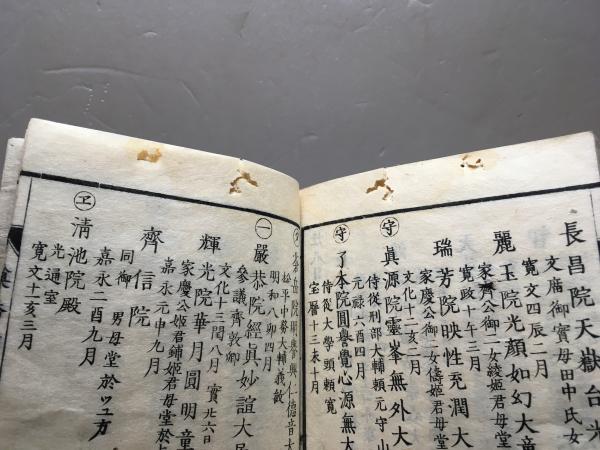 長昌院天嶽台光
文廟御實母田中氏女
寛文四辰二月
麗玉院光顔如幻大童
家齊公御二女綾姫君母堂
寛政十午三月
瑞芳院映性充潤大
家慶公御二女儔姫君母堂
文化十二亥二月
守 眞源院靈峯無外大
侍從刑部大輔頼元守山
元禄六酉四月
守 了本院圓譽覺心源無大
侍從大學頭頼寛
宝暦十三未十月
松平中務大輔義敏
明和八卯四月
一 嚴恭院經眞妙誼大居
參議齊敦卿
文化十三閏八月 實九六日
輝光院華月圓明童
家慶公姫君鐏姫君母堂
嘉永元申九月
齊信院
同御 男母堂於ツユノ方
嘉永二酉九月
ヱ 淸池院殿
光通室
寛文十一亥三月